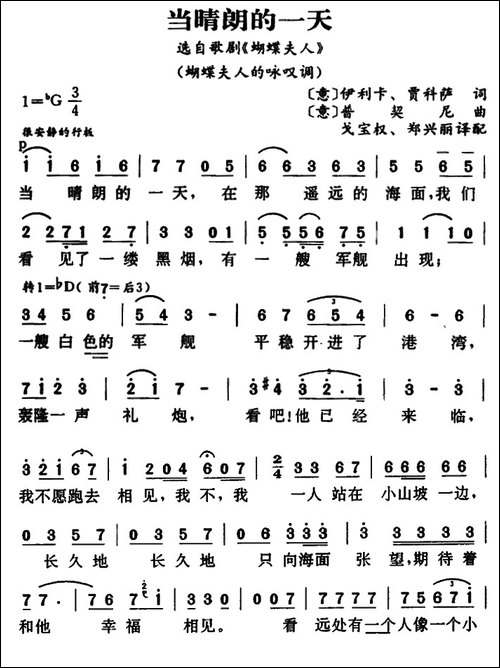 当晴朗的一天
选自歌剧《蝴蝶夫人》
（蝴蝶夫人的咏叹调）
1=♭G 3/4
〔意〕伊利卡、贾科萨 词
〔意〕普契尼 曲
戈宝权、郑兴丽译配
很安静的行板
p
1 1 6 1 6 | 7 7 0 5 | 6 6 3 6 3 | 5 5 6 5 5 |
当 晴朗的一天，在那 遥远的海面，我们
2 2 7 1 2 7 | 3 3 0 1 | 5 5 5 6 7 5 | 1 1 1 0 |
看见了一缕黑烟，有一艘军舰 出现；
转1=♭D（前7=后3）
3 4 5 6 | 5 4 3 - | 6 7 6 5 4 | 1 6 7 - |
一艘白色的军舰 平稳开进了港湾，
7 1 2 3 | 2 1 7 - | 3 #4 3 2 · 1 | 3 - 3 · |
轰隆一声礼炮，看吧！他已经来临，
3 2 1 6 7 | 1 2 0 4 4 6 0 7 | 2/4 3 3 6 7 | 6 6 6 6 6 |
我不愿跑去相见，我不，我 一人站在小山坡一边，
0 3 5 7 | 0 3 5 7 | 0 3 3 3 3 | 3 3 3 3 |
长久地 长久地 只向海面张望，期待着
7 7 · | 7 6 7 1 | 3 3 0 | 0 0 7 | 7 7 7 7 7 6 5 |
和他 幸福相见。看 远处有一个人像一个小